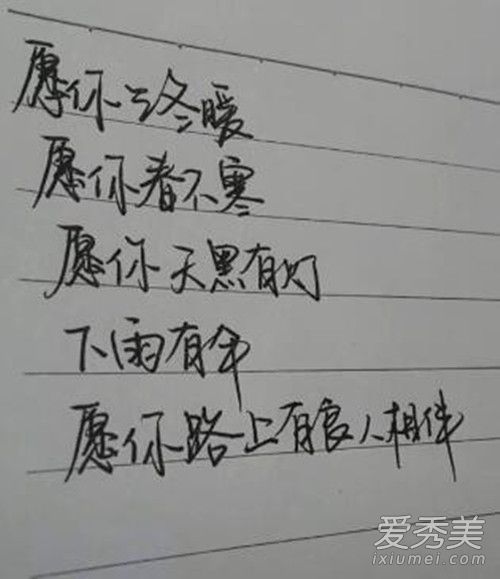 愿你三冬暖
愿你春不寒
愿你天黑有灯
下雨有伞
愿你路上有良人相伴
爱秀美
ixiumei.com